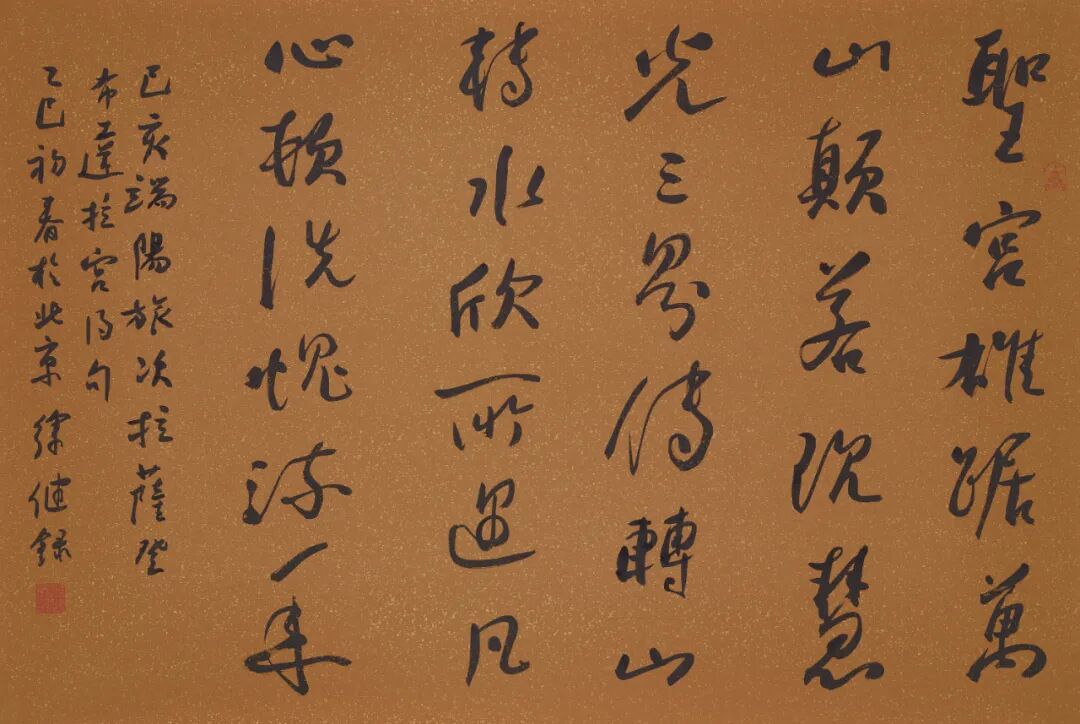 聖宮雄踞萬
山顛若慧
光三界傳轉山
轉水欣所遇凡
心頓洗愧流年
己亥端陽旅次拉薩登
布達拉宮得句
乙巳初春於北京 徐健錄